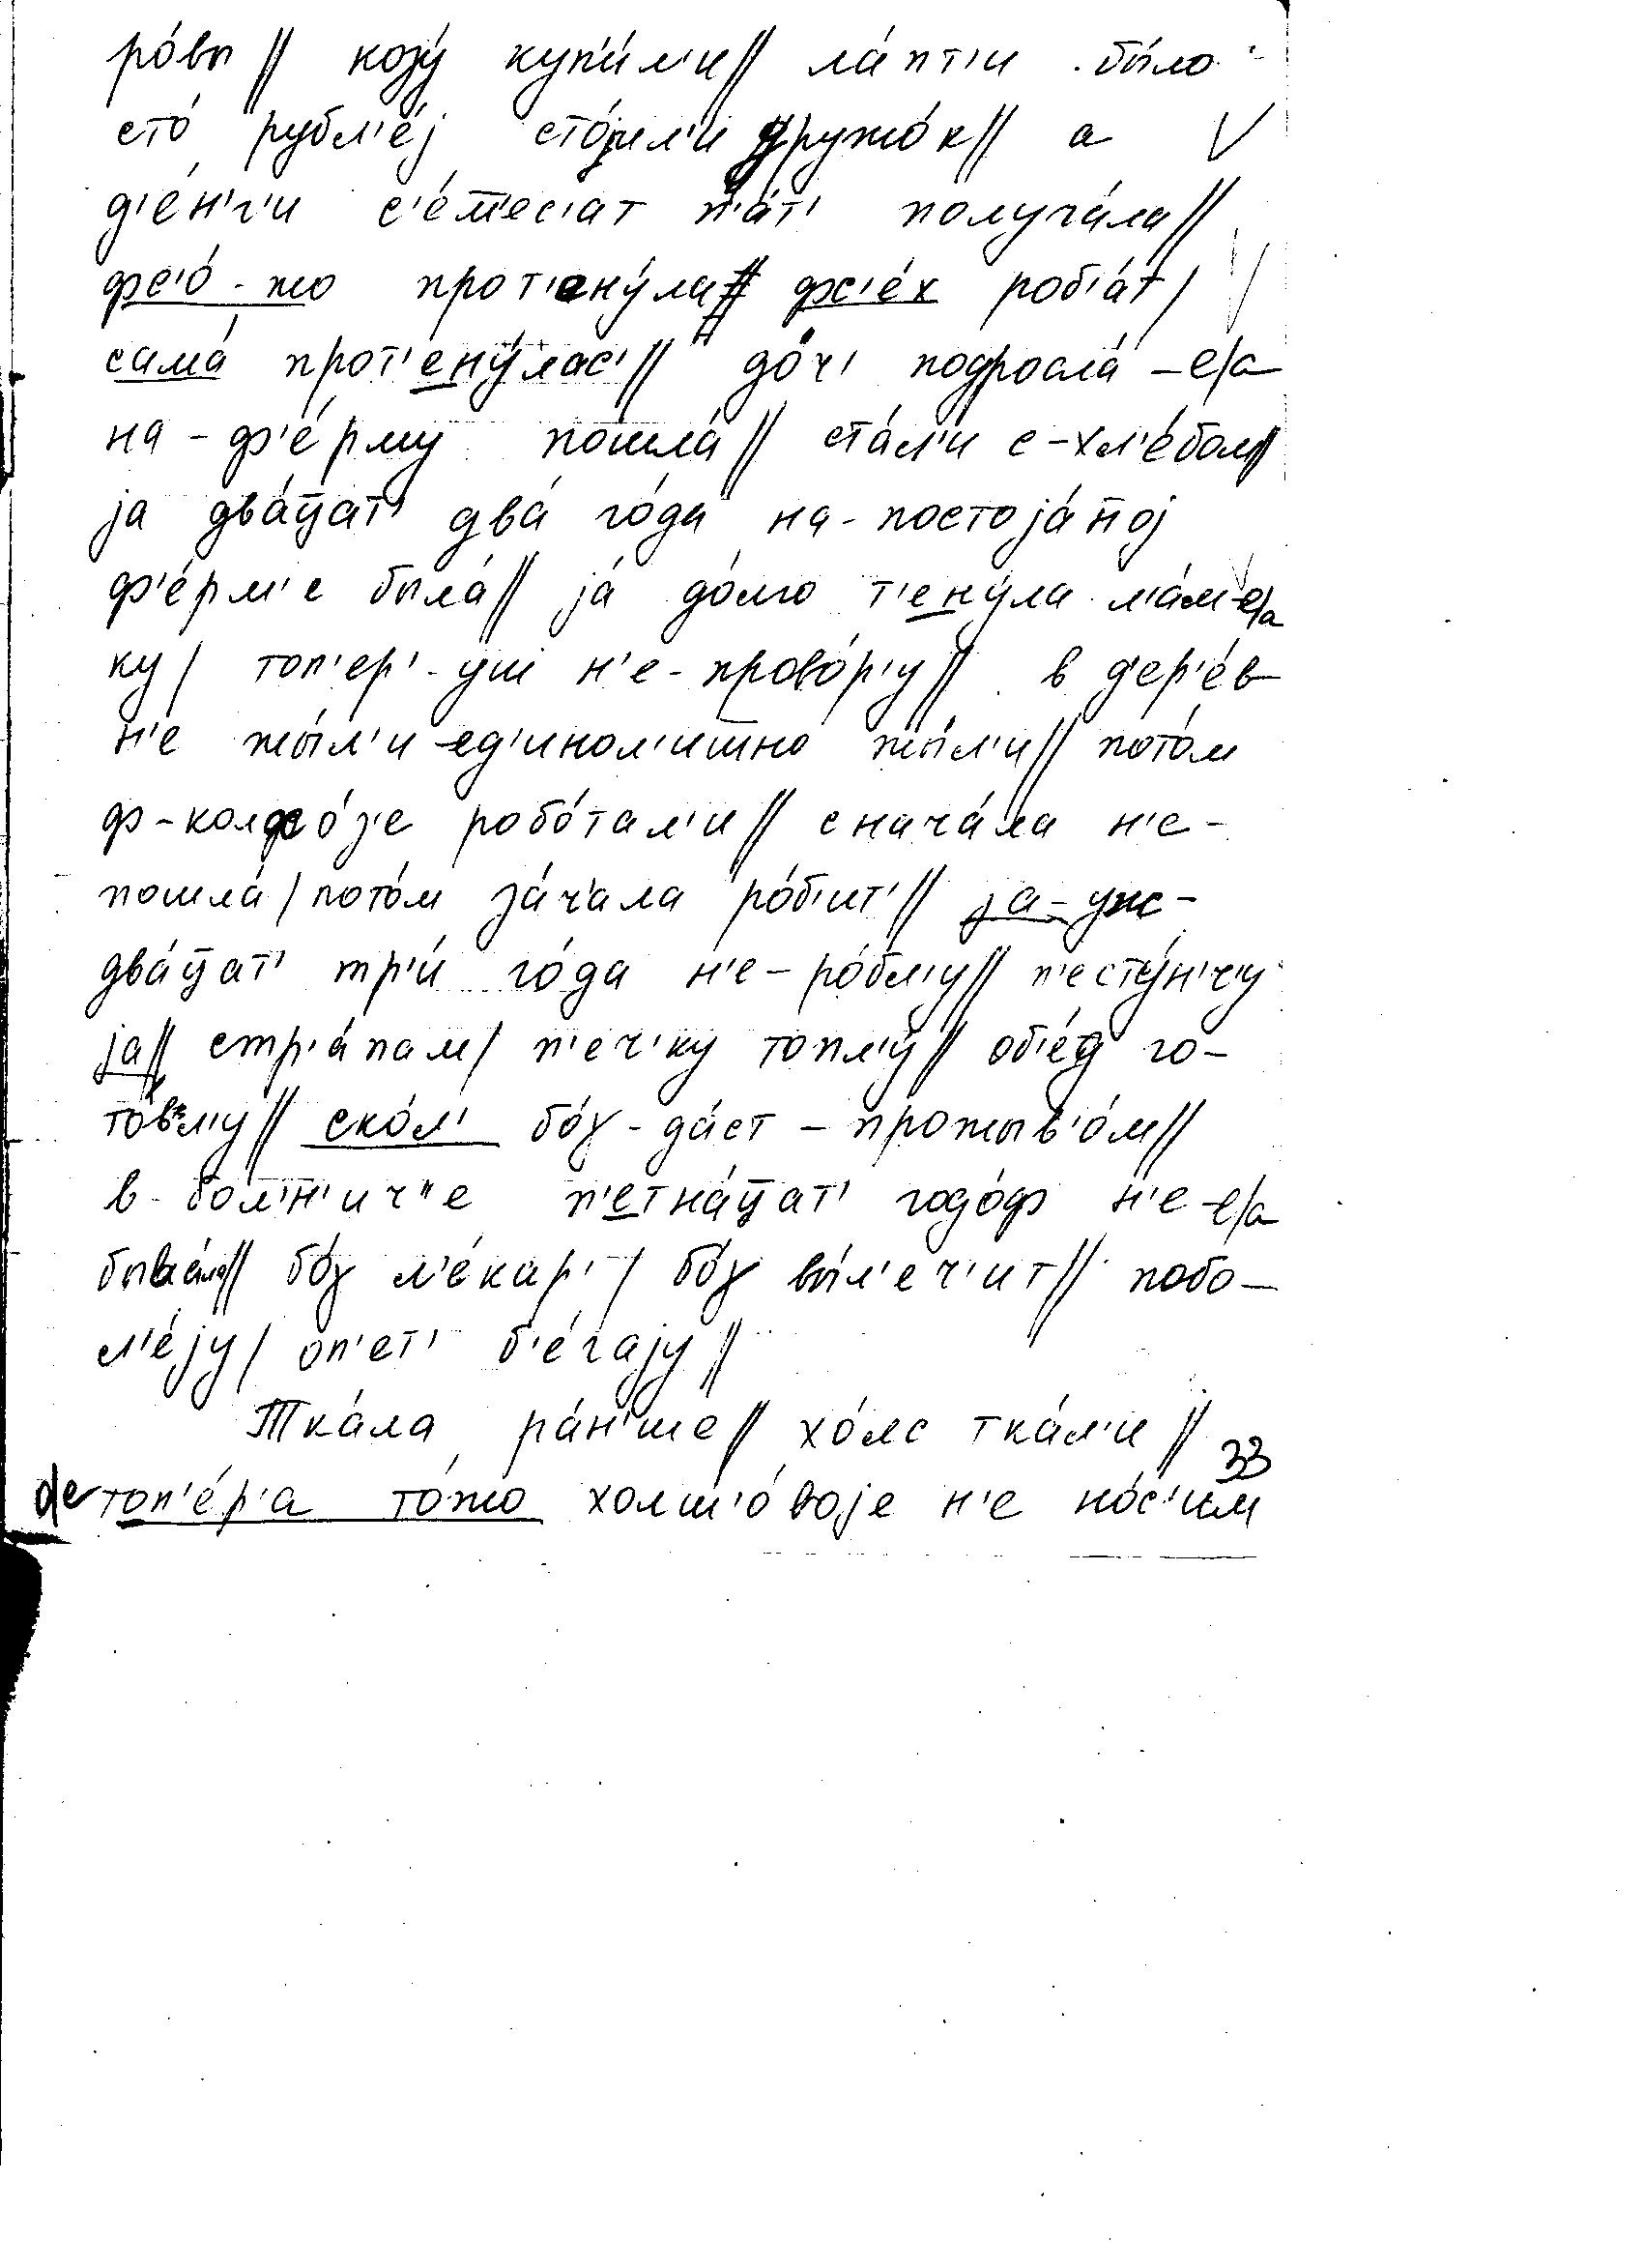 ро́вы // коз̌у́ куп'и́л'и // ла́пт'и было
сто́ рубл'е́j сто́jил'и дружо́к // а V
д'е́н'г'и с'е́м'ес'ат п'а́т' получа́ла //
фс'о́-жо прот'ену́ла // фс'е́х роб'а́т /
сама́ прот'ену́лас' // до́ч' подросла́ – е/а
на-ф'е́рму пошла́ // ста́л'и с-хл'е́бом //
jа два́ц̄ат' два́ го́да на-постоjа́н̄оj
ф'е́рм'е была́ // jа́ до́лго т'ену́ла л'а́м- е/а
ку / топ'ер'-уш н'е-прово́р'у // в д'ер'е́в-
н'е жы́л'и ед'инол'ишно жы́л'и // пото́м
ф-колхо́з'е робо́тал'и // снача́ла н'е-
пошла́ / пото́м за́ч'ала ро́б'ит' // jа-уж-
два́ц̄ат' тр'и́ го́да н'е-ро́бл'у // п'есту́н'ч'у
jа // стр'а́пам / п'еч'ку топл'у́ // об'е́д го-
то́вл'у // ско́л' бо́γ-да́ст – прожыв'о́м //
в-бол'н'ич"е п'етна́ц̄ат' годо́ф н'е – е/а
быва́ла // бо́γ л'е́кар' / бо́γ вы́л'еч'ит // побо-
л'е́jу / оп'ет' б'е́гаjу //
Тка́ла ра́н'ше // хо́лс тка́л'и // 33
о/е топ'е́р'а то́жо холш'о́воjе н'е но́с'им